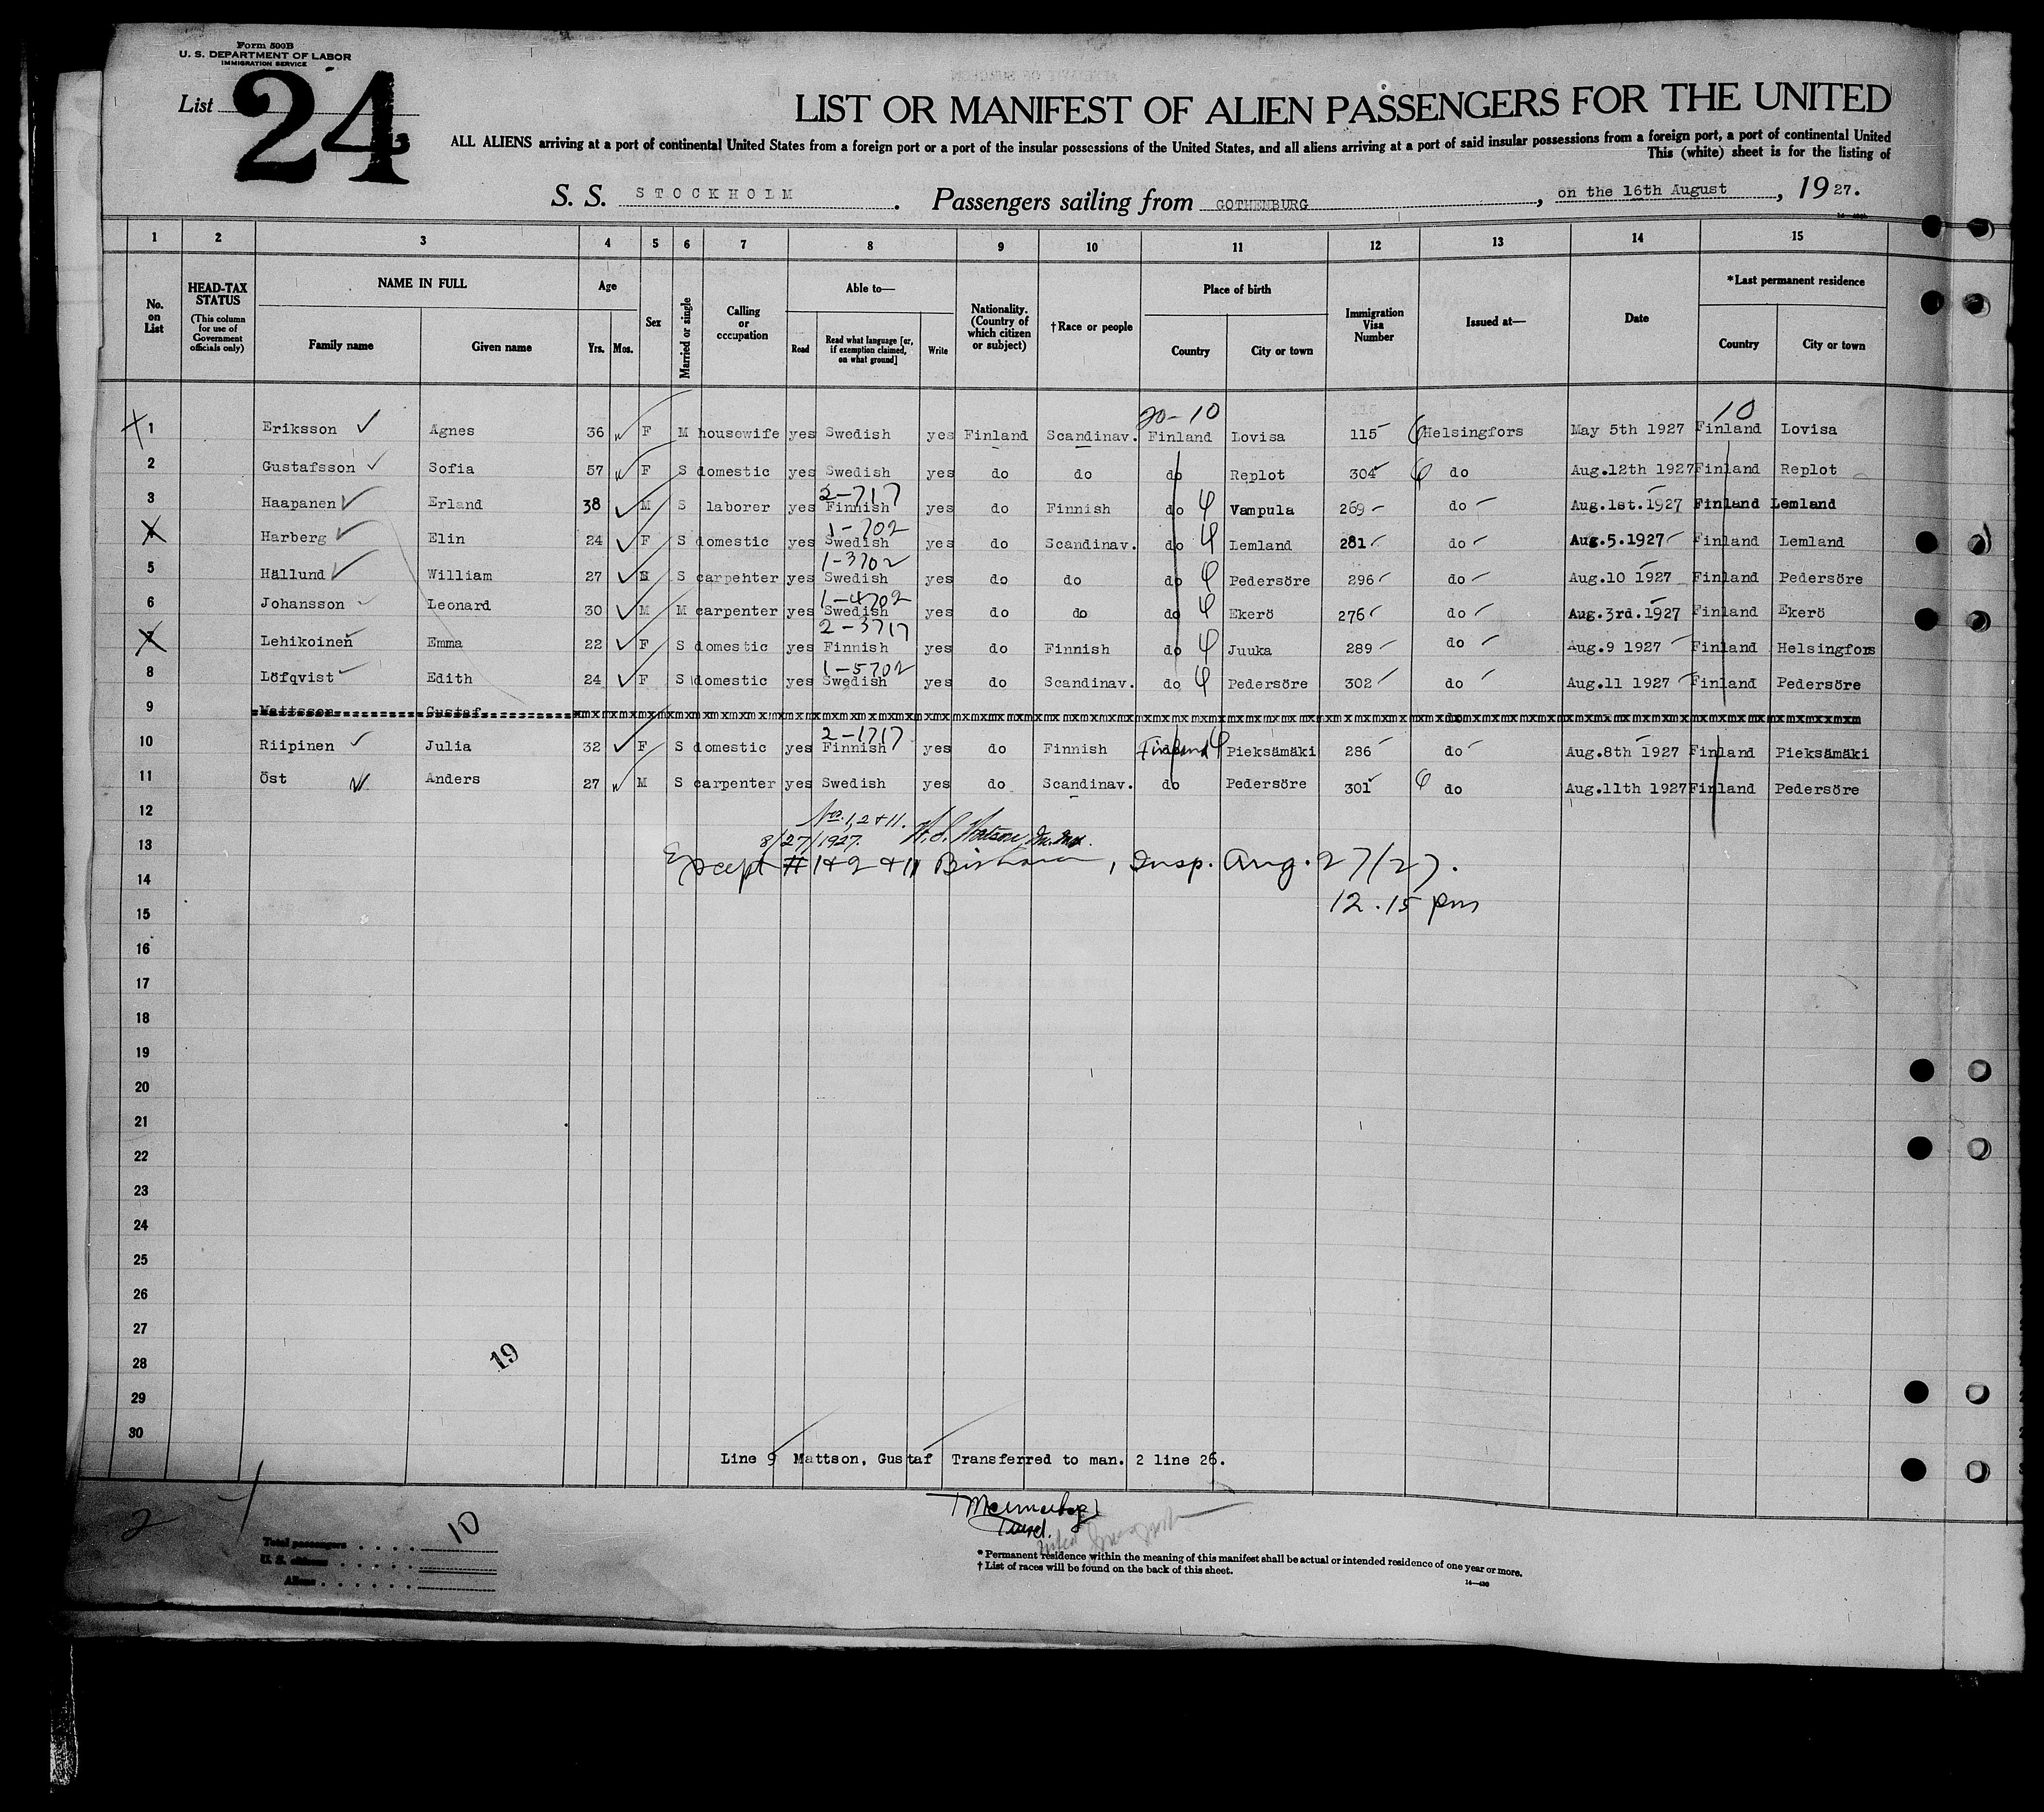 Form 500B
U. S. DEPARTMENT OF LABOR
IMMIGRATION SERVICE
List 24
LIST OR MANIFEST OF ALIEN PASSENGERS FOR THE UNITED
ALL ALIENS arriving at a port of continental United States from a foreign port or a port of the insular possessions of the United States, and all aliens arriving at a port of said insular possessions from a foreign port, a port of continental United
This (white) sheet is for the listing of
S. S. STOCKHOLM . Passengers sailing from GOTHENBURG , on the 16th August , 1927.
1 2 3 4 5 6 7 8 9 10 11 12 13 14 15
No. on List
HEAD-TAX STATUS (This column for use of Government officials only)
NAME IN FULL
Family name
Given name
Age
Yrs. Mos.
Sex
Married or single
Calling or occupation
Able to—
Read
Read what language [or, if exemption claimed, on what ground]
Write
Nationality. (Country of which citizen or subject)
†Race or people
Place of birth
Country
City or town
Immigration Visa Number
Issued at—
Date
*Last permanent residence
Country
City or town
20-10 10
1 Eriksson Agnes 36 F M housewife yes Swedish yes Finland Scandinav. Finland Lovisa 115 Helsingfors May 5th 1927 Finland Lovisa
2 Gustafsson Sofia 57 F S domestic yes Swedish yes do do do Replot 304 do Aug.12th 1927 Finland Replot
2-717
3 Haapanen Erland 38 M S laborer yes Finnish yes do Finnish do Vampula 269 do Aug.1st.1927 Finland Lemland
1-702
4 Harberg Elin 24 F S domestic yes Swedish yes do Scandinav. do Lemland 281 do Aug.5.1927 Finland Lemland
1-3702
5 Hällund William 27 M S carpenter yes Swedish yes do do do Pedersöre 296 do Aug.10 1927 Finland Pedersöre
1-4702
6 Johansson Leonard 30 M M carpenter yes Swedish yes do do do Ekerö 276 do Aug.3rd.1927 Finland Ekerö
2-3717
7 Lehikoinen Emma 22 F S domestic yes Finnish yes do Finnish do Juuka 289 do Aug.9 1927 Finland Helsingfors
1-5702
8 Löfqvist Edith 24 F S domestic yes Swedish yes do Scandinav. do Pedersöre 302 do Aug.11 1927 Finland Pedersöre
9 Mattsson Gustaf
2-1717
10 Riipinen Julia 32 F S domestic yes Finnish yes do Finnish Finland Pieksämäki 286 do Aug.8th 1927 Finland Pieksämäki
11 Öst Anders 27 M S carpenter yes Swedish yes do Scandinav. do Pedersöre 301 do Aug.11th 1927 Finland Pedersöre
12 Nos. 1, 2 + 11.
13 8/27/1927.
Except # 1 + 2 + 11 Insp. Aug. 27/27.
14
12.15 pm
15
16
17
18
19
20
21
22
23
24
25
26
27
28 19
29
30
Line 9 Mattson, Gustaf Transferred to man. 2 line 26.
2
Total passengers 10
U. S. citizens
Aliens
* Permanent residence within the meaning of this manifest shall be actual or intended residence of one year or more.
† List of races will be found on the back of this sheet.